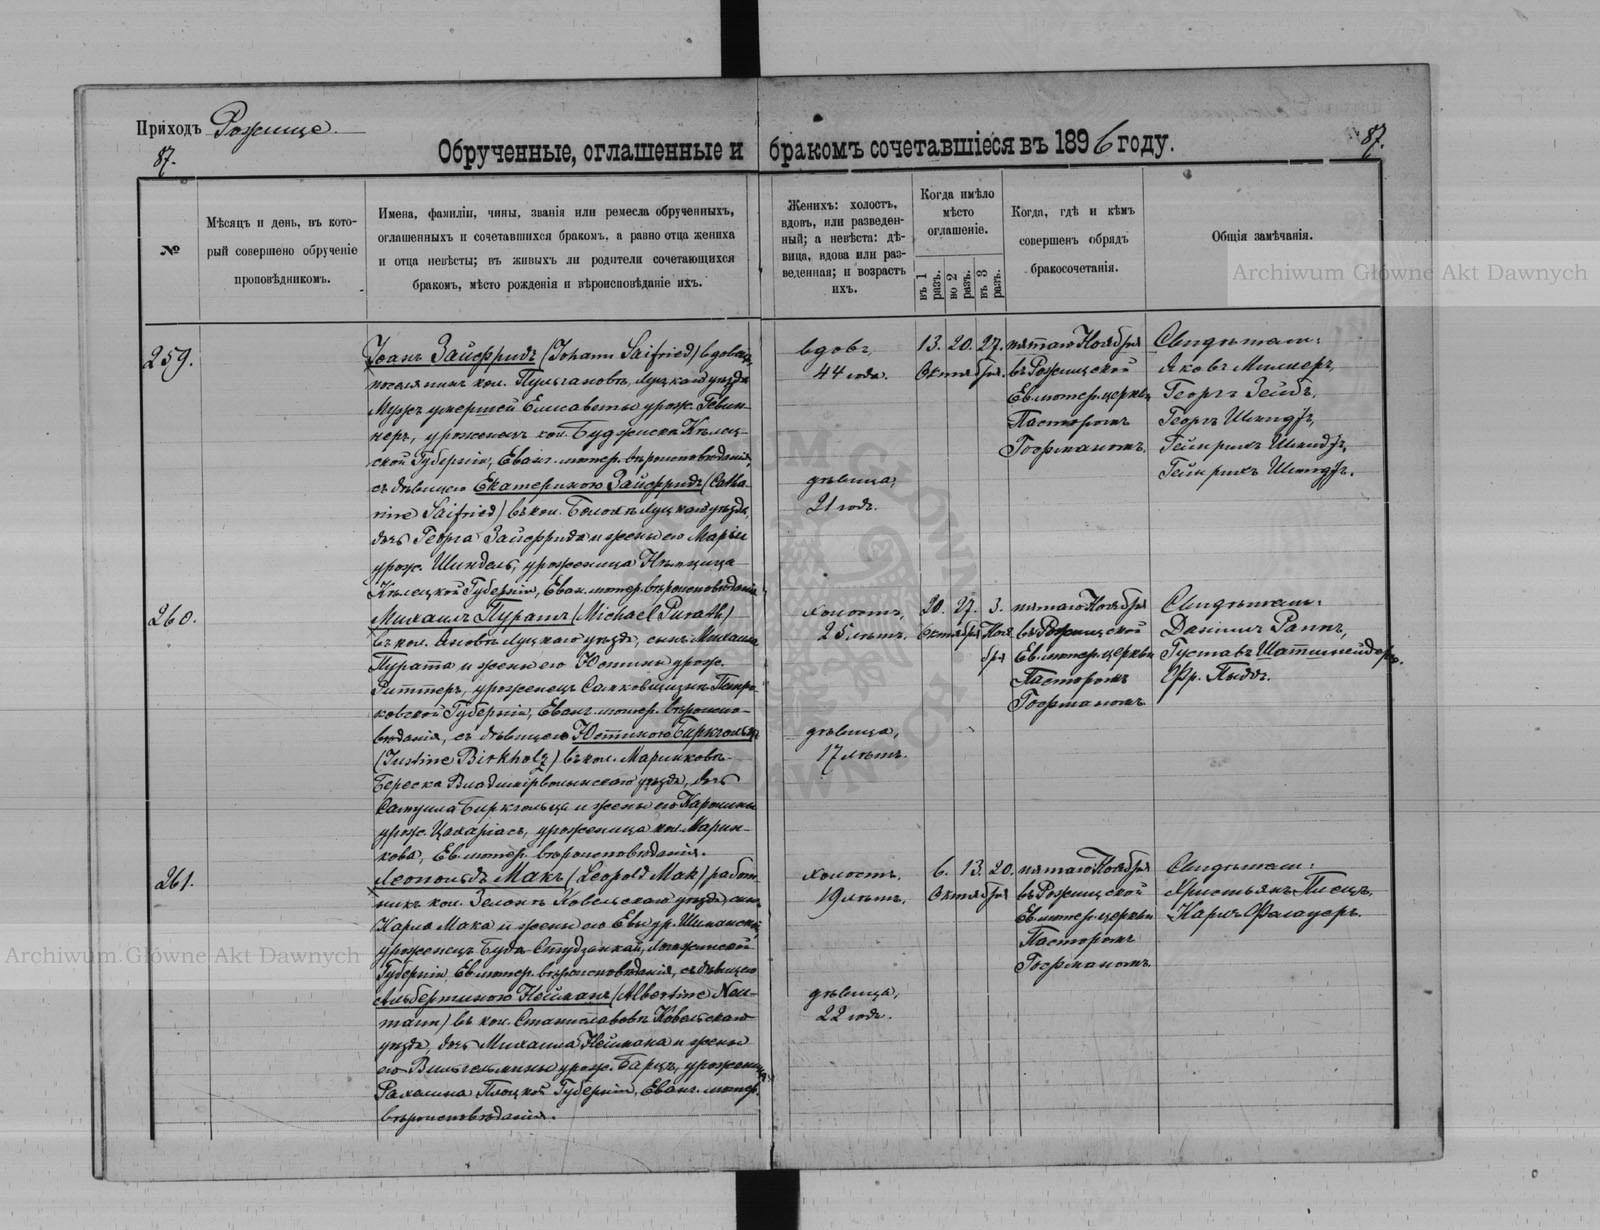 Приходъ Рожище
87.
87.
Обрученные, оглашенные и бракомъ сочетавшіеся въ 1896 году.
№
Мѣсяцъ и день, въ кото-
рый совершено обрученіе
проповѣдникомъ.
Имена, фамиліи, чины, званія или ремесла обрученныхъ,
оглашенныхъ и сочетавшихся бракомъ, а равно отца жениха
и отца невѣсты; въ живыхъ ли родители сочетающихся
бракомъ, мѣсто рожденія и вѣроисповѣданіе ихъ.
Женихъ: холостъ,
вдовъ, или разведен-
ный; а невѣста: дѣ-
вица, вдова или раз-
веденная; и возрастъ
ихъ.
Когда имѣло
мѣсто
оглашеніе.
въ 1 разъ.
во 2 разъ.
въ 3 разъ.
Когда, гдѣ и кѣмъ
совершенъ обрядъ
бракосочетанія.
Общія замѣчанія.
259.
Іоанъ Зайфридъ (Johann Saifried) вдовецъ,
поселянинъ кол. Пульгановъ, Луцкаго уѣзда
Мужъ умершей Елисаветы урож. Гевин-
неръ, уроженецъ кол. Кѣлец-
кой Губерніи, Еванг. лютер. вѣроисповѣданія,
съ дѣвицею Екатериною Зайфридъ (Catha-
rine Saifried) въ кол. Луцкаго уѣзда,
дочь Георга Зайфрида и жены его Маріи
урож. Шиндель, уроженица
Кѣлецкой Губерніи, Еван. лютер. вѣроисповѣданія
вдовъ,
44 года.
дѣвица,
21 годъ.
13. 20. 27.
Октября.
пятаго Ноября
въ Рожищской
Ев. лютер. церкви
Пасторомъ
Госфманомъ.
Свидѣтели:
Яковъ Миллеръ,
Георгъ Зейбъ,
Георгъ Шмидтъ,
Гейнрихъ Шмидтъ,
Гейнрихъ Шмидтъ.
260.
Михаилъ Пуратъ (Michael Purath)
въ кол. Яновкѣ Луцкаго уѣзда, сынъ Михаила
Пурата и жены его Юстины урож.
Риттеръ, уроженецъ Петро-
ковской Губерніи, Еванг. лютер. вѣроиспо-
вѣданія, съ дѣвицею Юстиною Биркгольцъ
(Justine Birkholz) въ кол. Маринковъ-
Береска Владимірволынскаго уѣзда, дочь
Самуила Биркгольца и жены его Каролины
урож. Цахаріасъ, уроженица кол. Марин-
кова, Ев. лютер. вѣроисповѣданія.
холостъ,
25 лѣтъ.
дѣвица,
17 лѣтъ.
20. 27. 3.
Октября Ноя
бря
пятаго Ноября
въ Рожищской
Ев. лютер. церкви
Пасторомъ
Госфманомъ
Свидѣтели:
Даніилъ Раппъ,
Густавъ Шатшнейдеръ,
Фр. Тыдъ.
261.
Леопольдъ Макъ (Leopold Mak) работ-
никъ кол. Зелонъ Ковельскаго уѣзда, сынъ
Карла Мака и жены его Евы ур. Шиманской,
уроженецъ Буда Ломжинской
Губерніи Ев. лютер. вѣроисповѣданія, съ дѣвицею
Альбертиною Нейманъ (Albertine Neu-
mann) въ кол. Станиславовъ Ковельскаго
уѣзда, дочь Михаила Неймана и жены
его Вильгельмины урож. Барцъ, уроженица
Плоцкой Губерніи, Еванг. лютер.
вѣроисповѣданія.
холостъ,
19 лѣтъ.
дѣвица,
22 года.
6. 13. 20.
Октября
пятаго Ноября
въ Рожищской
Ев. лютер. церкви
Пасторомъ
Госфманомъ.
Свидѣтели:
Христьянъ Тлецъ,
Карлъ Фалауеръ.
Archiwum Główne Akt Dawnych
Archiwum Główne Akt Dawnych